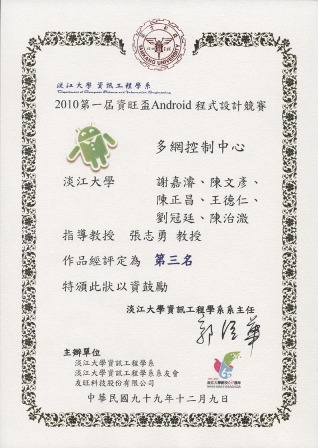 TAMKANG UNIVERSITY
淡江大學 資訊工程學系
Department of Computer Science and Information Engineering
2010第一屆資旺盃Android 程式設計競賽
多網控制中心
淡江大學 謝嘉濬、陳文彥、
陳正昌、王德仁、
劉冠廷、陳治澂
指導教授 張志勇 教授
作品經評定為 第三名
特頒此狀以資鼓勵
淡江大學資訊工程學系系主任
主辦單位
淡江大學資訊工程學系
淡江大學資訊工程學系系友會
友旺科技股份有限公司
中華民國九十九年十二月九日